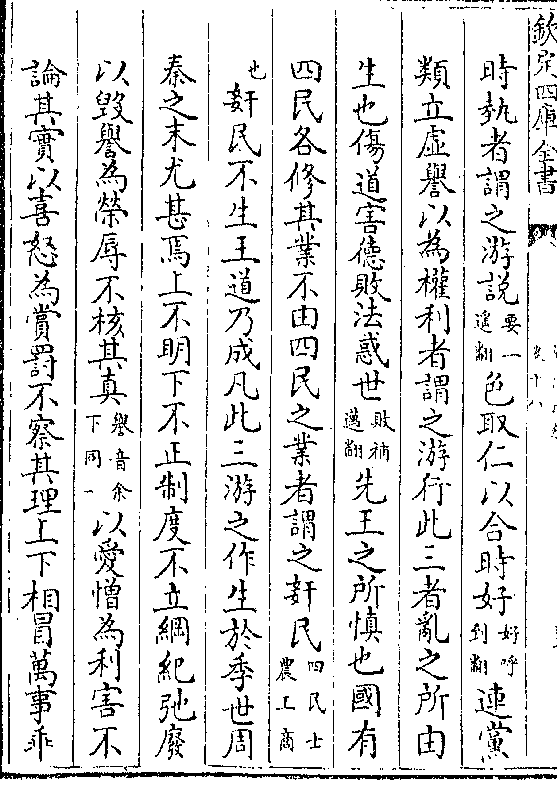 欽定四庫全書
時埶者謂之游說要一遥翻色取仁以合時好好呼到翻連黨
類立虛譽以為權利者謂之游行此三者亂之所由
生也傷道害德敗法惑世敗補邁翻先王之所慎也國有
四民各修其業不由四民之業者謂之姧民四民士農工商
也姧民不生王道乃成凡此三游之作生於季世周
秦之末尤甚焉上不明下不正制度不立綱紀弛廢
以毁譽為榮辱不核其真譽音余下同以愛憎為利害不
論其實以喜怒為賞罰不察其理上下相冒萬事乖